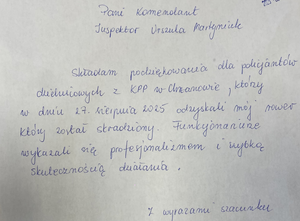 Pani Komendant
Inspektor Urszula Martyniuk
Składam podziękowania dla policjantów
dzielnicowych z KPP w Chrzanowie, którzy
w dniu 27. sierpnia 2025 odzyskali mój rower
który został skradziony. Funkcjonariusze
wykazali się profesjonalizmem i szybką
skutecznością działania.
Z wyrazami szacunku